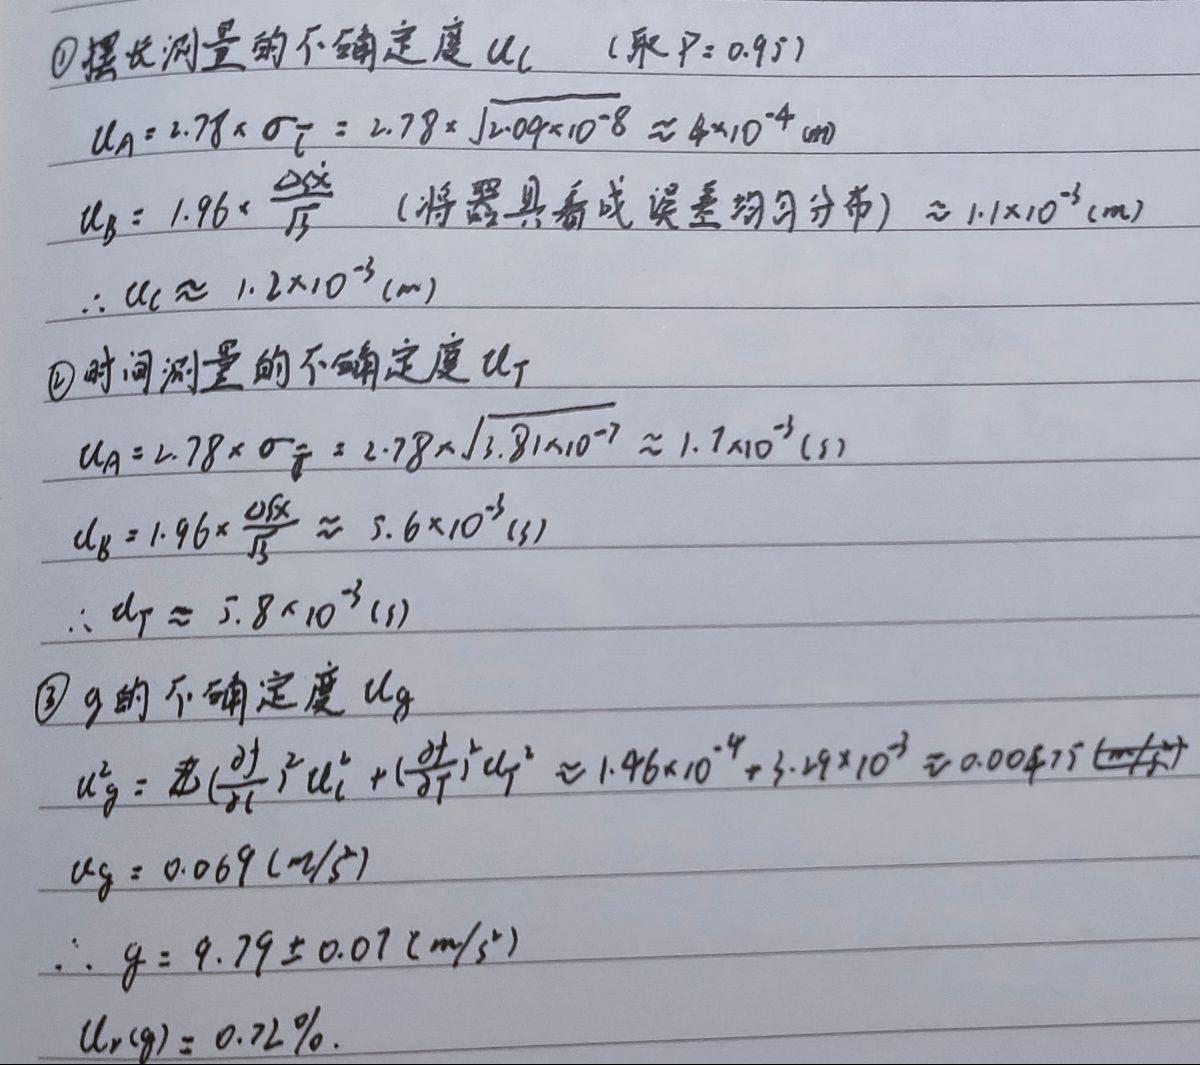 ①摆长测量的不确定度 u_l (取P=0.95)
u_A = 2.78 × σ_l̄ = 2.78 × √(2.09×10⁻⁸) ≈ 4×10⁻⁴ (m)
u_B = 1.96 × Δ仪/√3 (将器具看成误差均匀分布) ≈ 1.1×10⁻³ (m)
∴ u_l ≈ 1.2×10⁻³ (m)
②时间测量的不确定度 u_T
u_A = 2.78 × σ_T̄ = 2.78 × √(3.81×10⁻⁷) ≈ 1.7×10⁻³ (s)
u_B = 1.96 × Δ仪/√3 ≈ 5.6×10⁻³ (s)
∴ u_T ≈ 5.8×10⁻³ (s)
③ g的不确定度 u_g
u²_g = (∂f/∂l)² u_l² + (∂f/∂T)² u_T² ≈ 1.46×10⁻⁴ + 3.29×10⁻³ ≈ 0.00475
u_g = 0.069 (m/s²)
∴ g = 9.79 ± 0.07 (m/s²)
u_r(g) = 0.72%.